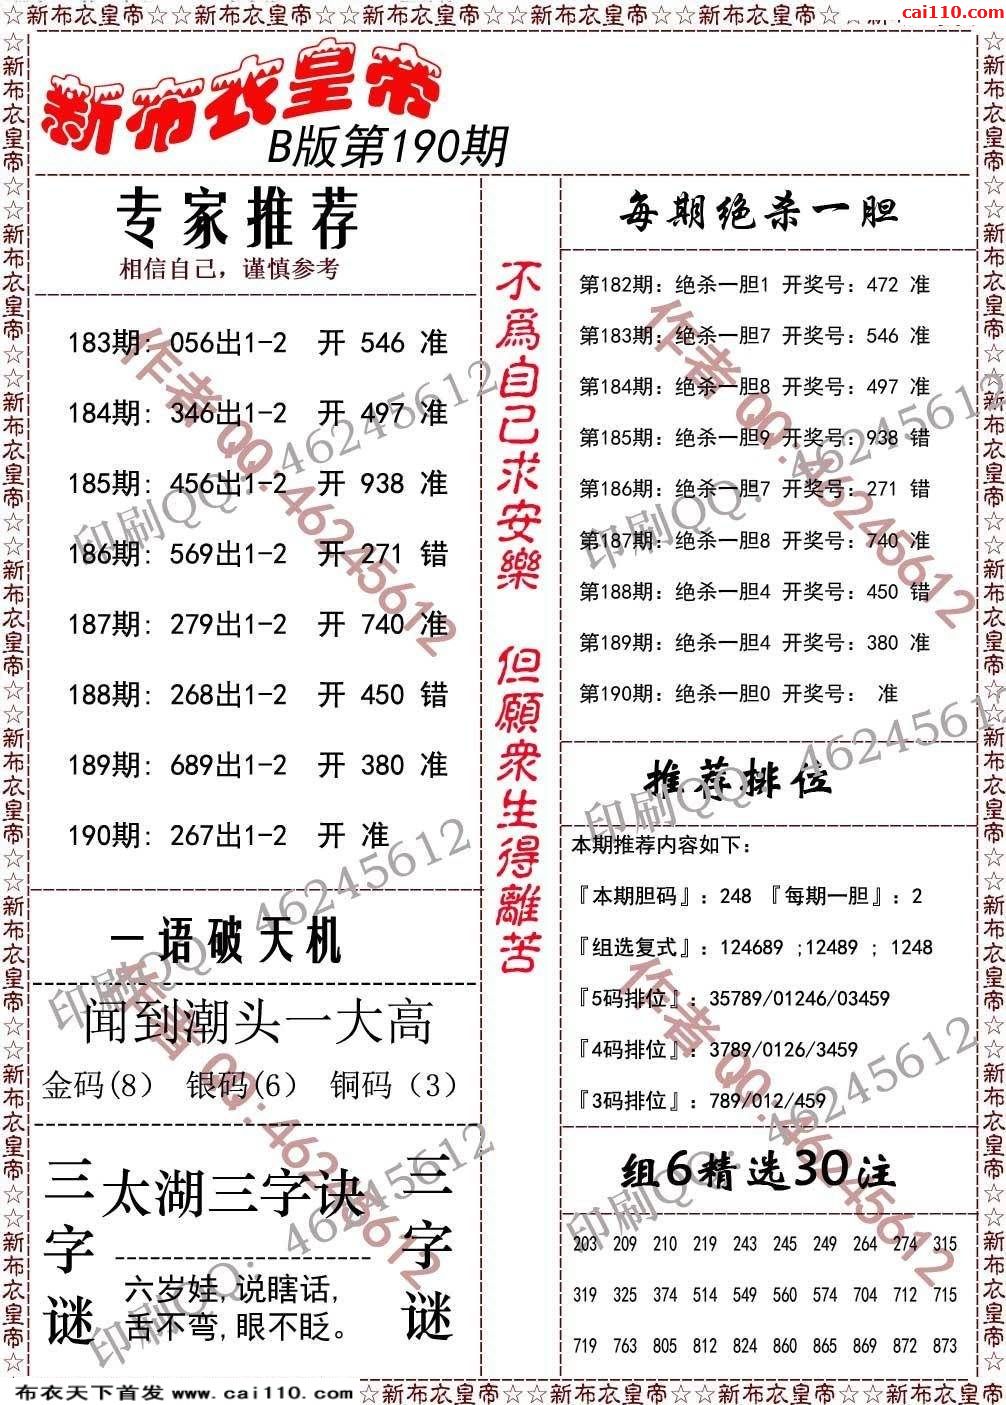 ☆新布衣皇帝☆☆新布衣皇帝☆☆新布衣皇帝☆☆新布衣皇帝☆☆新布衣皇帝☆☆新布衣皇帝☆
cai110.com
新布衣皇帝
B版第190期
专家推荐
相信自己，谨慎参考
183期: 056出1-2 开 546 准
184期: 346出1-2 开 497 准
185期: 456出1-2 开 938 准
186期: 569出1-2 开 271 错
187期: 279出1-2 开 740 准
188期: 268出1-2 开 450 错
189期: 689出1-2 开 380 准
190期: 267出1-2 开 准
一语破天机
闻到潮头一大高
金码(8) 银码(6) 铜码（3）
三字谜
太湖三字诀
六岁娃,说瞎话,
舌不弯,眼不眨。
三字谜
不爲自己求安樂 但願衆生得離苦
每期绝杀一胆
第182期: 绝杀一胆1 开奖号: 472 准
第183期: 绝杀一胆7 开奖号: 546 准
第184期: 绝杀一胆8 开奖号: 497 准
第185期: 绝杀一胆9 开奖号: 938 错
第186期: 绝杀一胆7 开奖号: 271 错
第187期: 绝杀一胆8 开奖号: 740 准
第188期: 绝杀一胆4 开奖号: 450 错
第189期: 绝杀一胆4 开奖号: 380 准
第190期: 绝杀一胆0 开奖号: 准
推荐排位
本期推荐内容如下:
『本期胆码』: 248 『每期一胆』: 2
『组选复式』: 124689 ;12489 ; 1248
『5码排位』: 35789/01246/03459
『4码排位』: 3789/0126/3459
『3码排位』: 789/012/459
组6精选30注
203 209 210 219 243 245 249 264 274 315
319 325 374 514 549 560 574 704 712 715
719 763 805 812 824 860 865 869 872 873
作者 QQ: 46245612
印刷QQ: 46245612
布衣天下首发 www.cai110.com ☆新布衣皇帝☆☆新布衣皇帝☆☆新布衣皇帝☆☆新布衣皇帝☆